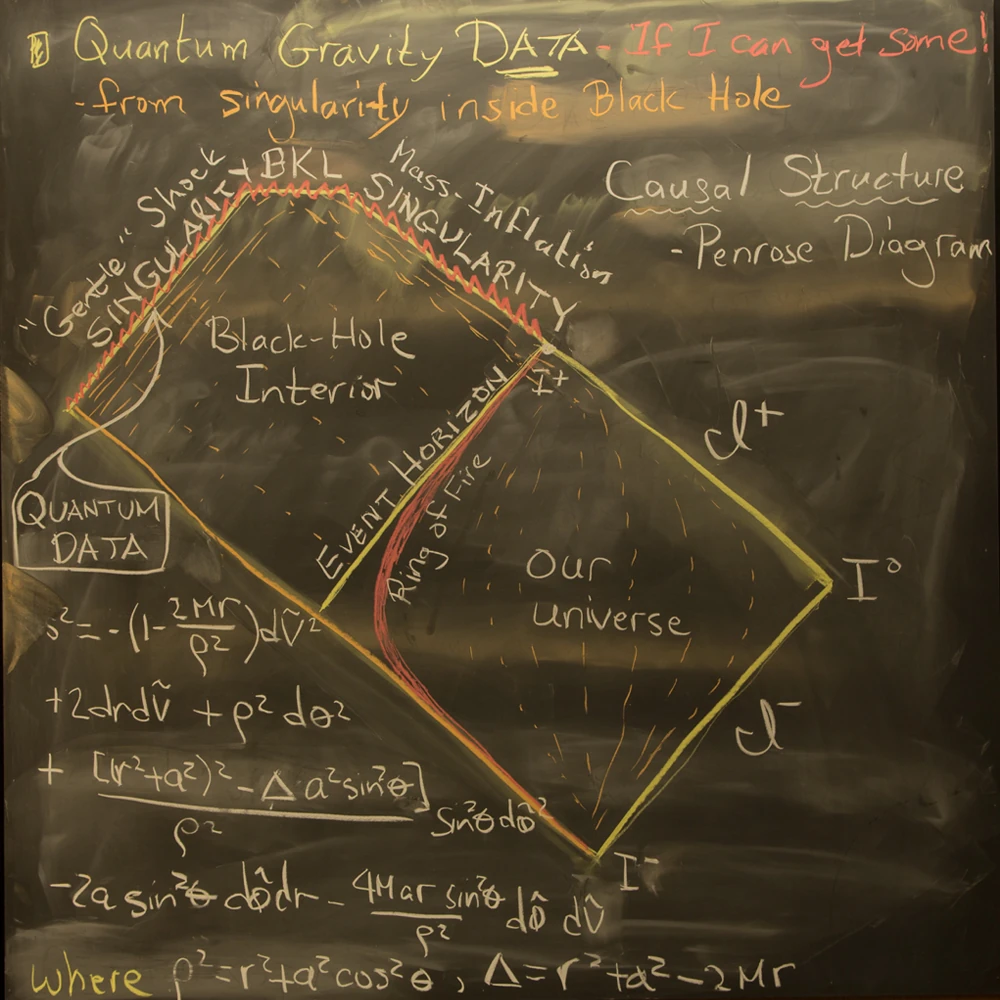 Quantum Gravity DATA - If I can get some!
- from singularity inside Black Hole
Causal Structure
- Penrose Diagram
"Gentle" Shock
SINGULARITY
BKL
Mass-Inflation
SINGULARITY
Black-Hole
Interior
I⁺
EVENT HORIZON
Ring of Fire
QUANTUM
DATA
Our
universe
ℐ⁺
I⁰
ℐ⁻
I⁻
s² = -(1 - 2Mr/ρ²)dṽ²
+2drdṽ + ρ² dθ²
+ [(r²+a²)² - Δ a² sin²θ]/ρ² sin²θ dφ̃²
-2a sin²θ dφ̂dr - 4Mar sin²θ/ρ² dφ̂ dv̂
where ρ²=r²+a²cos²θ, Δ=r²+a²-2Mr